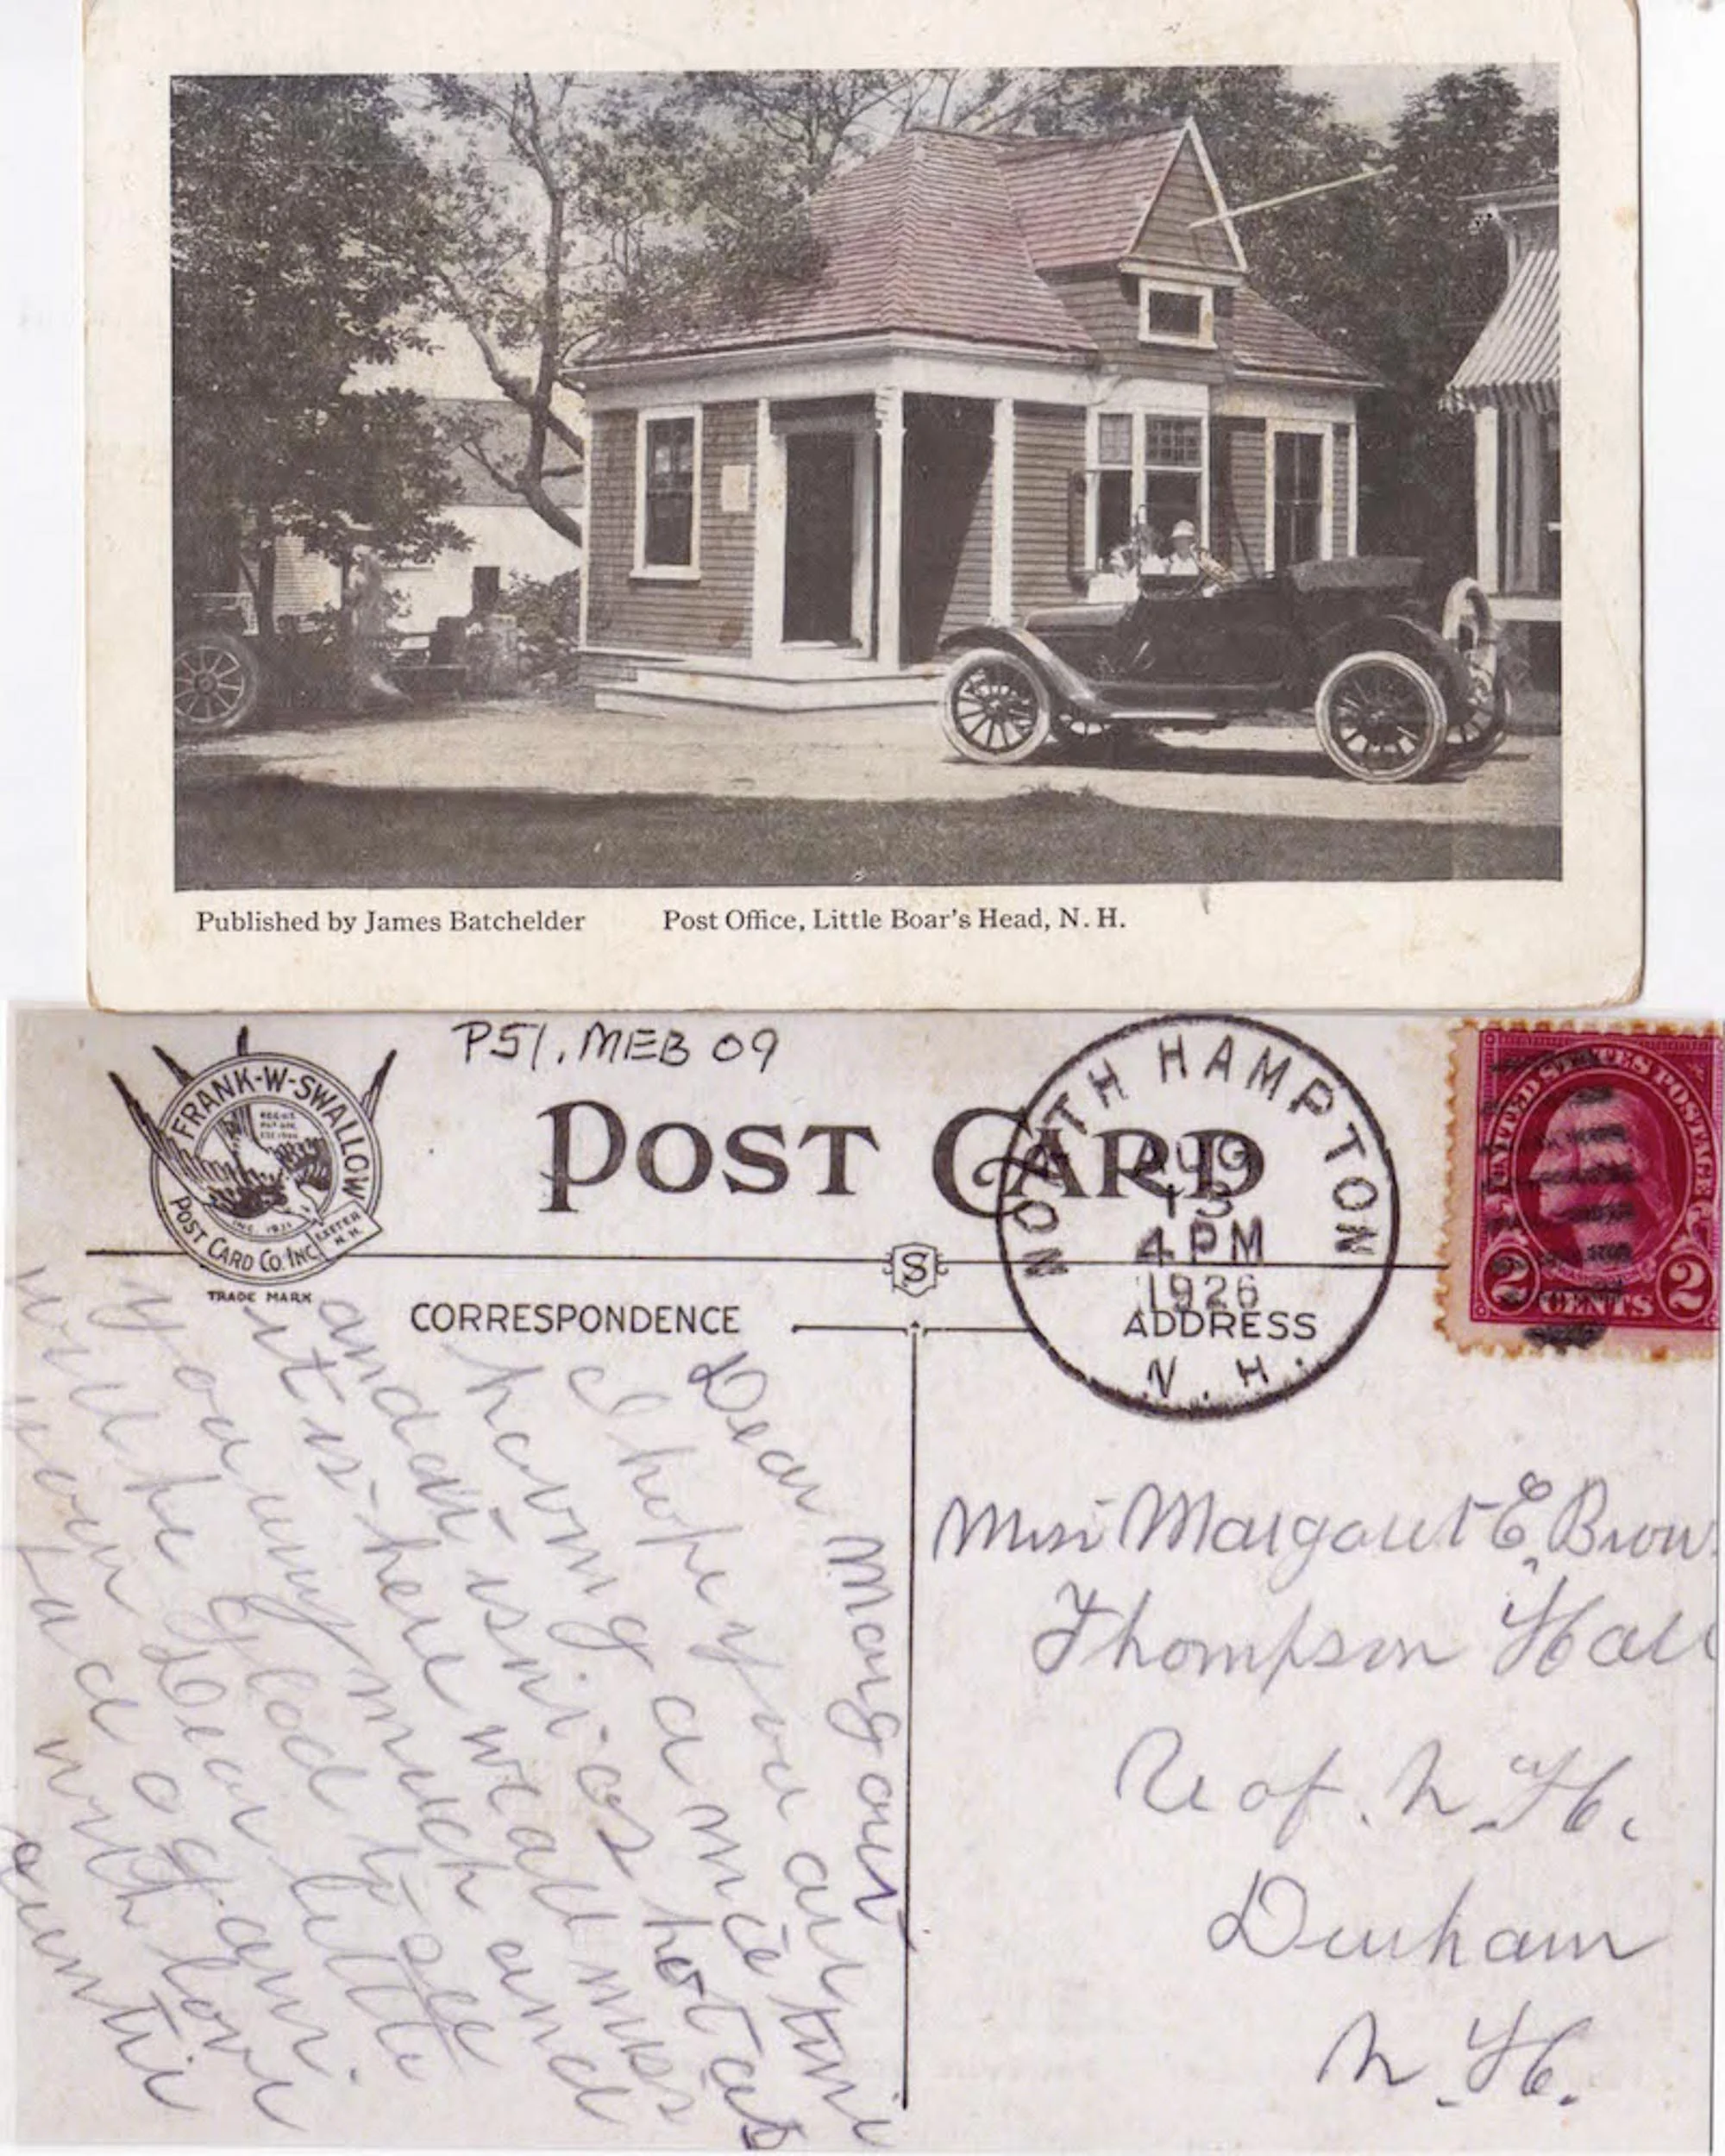 Published by James Batchelder
Post Office, Little Boar's Head, N. H.
P51. MEB 09
FRANK-W-SWALLOW
POST CARD CO. INC.
EXETER
N. H.
TRADE MARK
POST CARD
S
CORRESPONDENCE
ADDRESS
NORTH HAMPTON
AUG
13
4 PM
1926
N. H.
UNITED STATES POSTAGE
2 CENTS 2
Dear Margaret
I hope you are
having a nice time
and isn't as hot as
it is here we all miss
you very much and
will be glad to see
your Dear little
face again.
with love
auntie
Miss Margaret E. Brow
Thompson Hall
U of. N. H.
Durham
N. H.